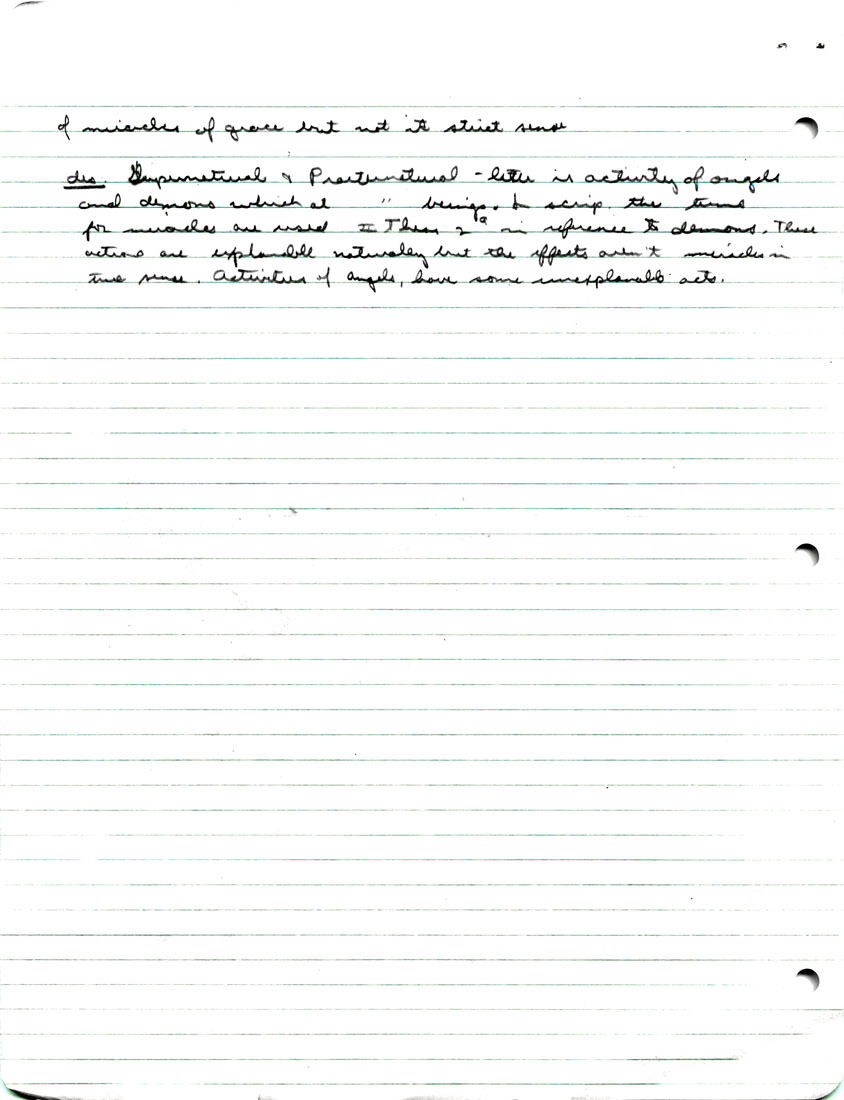 of miracles of grace but not it strict sense
dis. Supernatural & Praeternatural - latter is activity of angels
and demons which at " beings. In scrip. the terms
for miracles are used II Thess 2⁹ in reference to demons. These
actions are explanable naturally but the effects aren't miracles in
true sense. Activities of angels, have some unexplanable acts.